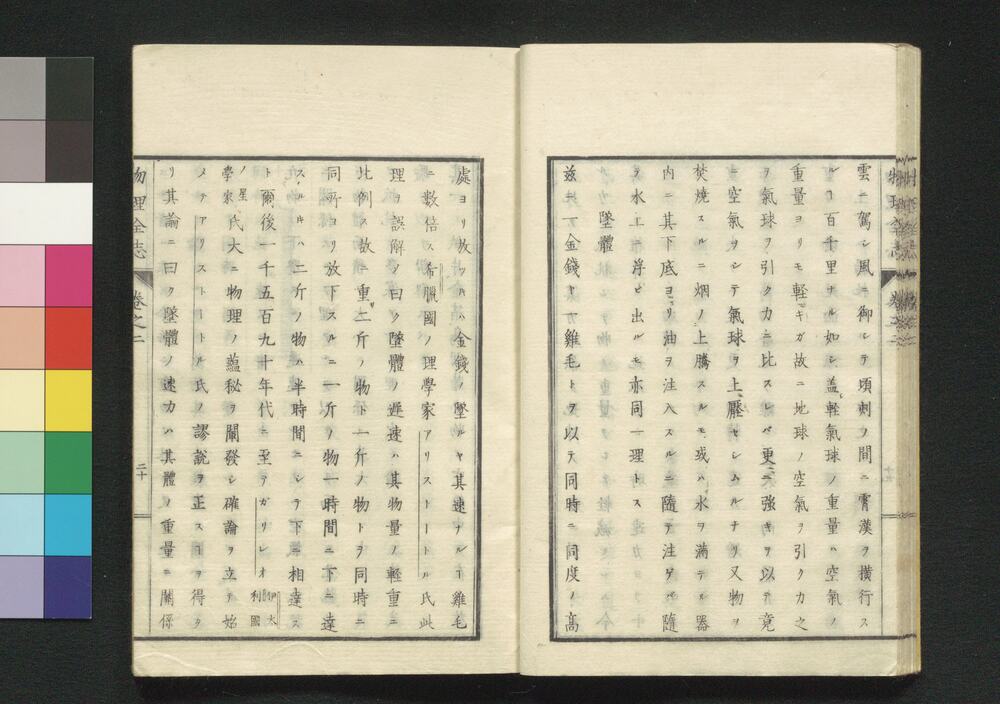 雲ニ駕シ風ニ御シテ頃刺ノ間ニ霄漢ヲ横行ス
ルヿ百千里ナルカ如シ盖軽氣球ノ重量ハ空氣ノ
重量ヨリモ軽キガ故ニ地球ノ空氣ヲ引クカ之
ヲ氣球ヲ引クカニ比スレバ更ニ強キヲ以テ竟
ニ空氣ヲシテ氣球ヲ上壓セシムルナリ又物ヲ
焚焼スルニ烟ノ上騰スルモ或ハ水ヲ満テル器
内ニ其下底ヨリ油ヲ注入スルニ隨テ注ゲバ隨
ヲ水上ニ浮ビ出ルモ亦同一理トス
墜體
茲ニ一金錢ト一雞毛トヲ以テ同時ニ同度ノ高
處ヨリ放ツトハ金錢ノ墜ルヤ其速ナルヿ雞毛
ニ數倍ス希臘國ノ理學家アリストートル氏此
理ヲ誤解シ曰ク墜體ノ遲速ハ其物量ノ軽重ニ
比例ス故ニ重サ二斤ノ物ト一斤ノ物トヲ同時ニ
同所ヨリ放下スルニ一斤ノ物一時間ニ下ニ達
スルトハ二斤ノ物ハ半時間ニシテ下ニ相達ス
ト爾後一千五百九十年代ニ至テガリレオ伊太利國
ノ星學家氏大ニ物理ノ蘊秘ヲ闡發シ確論ヲ立テ始
メテアリストートル氏ノ謬説ヲ正スヿヲ得タ
リ其論ニ曰ク墜體ノ速力ハ其體ノ重量ニ關係
物理全志
卷之二
二十